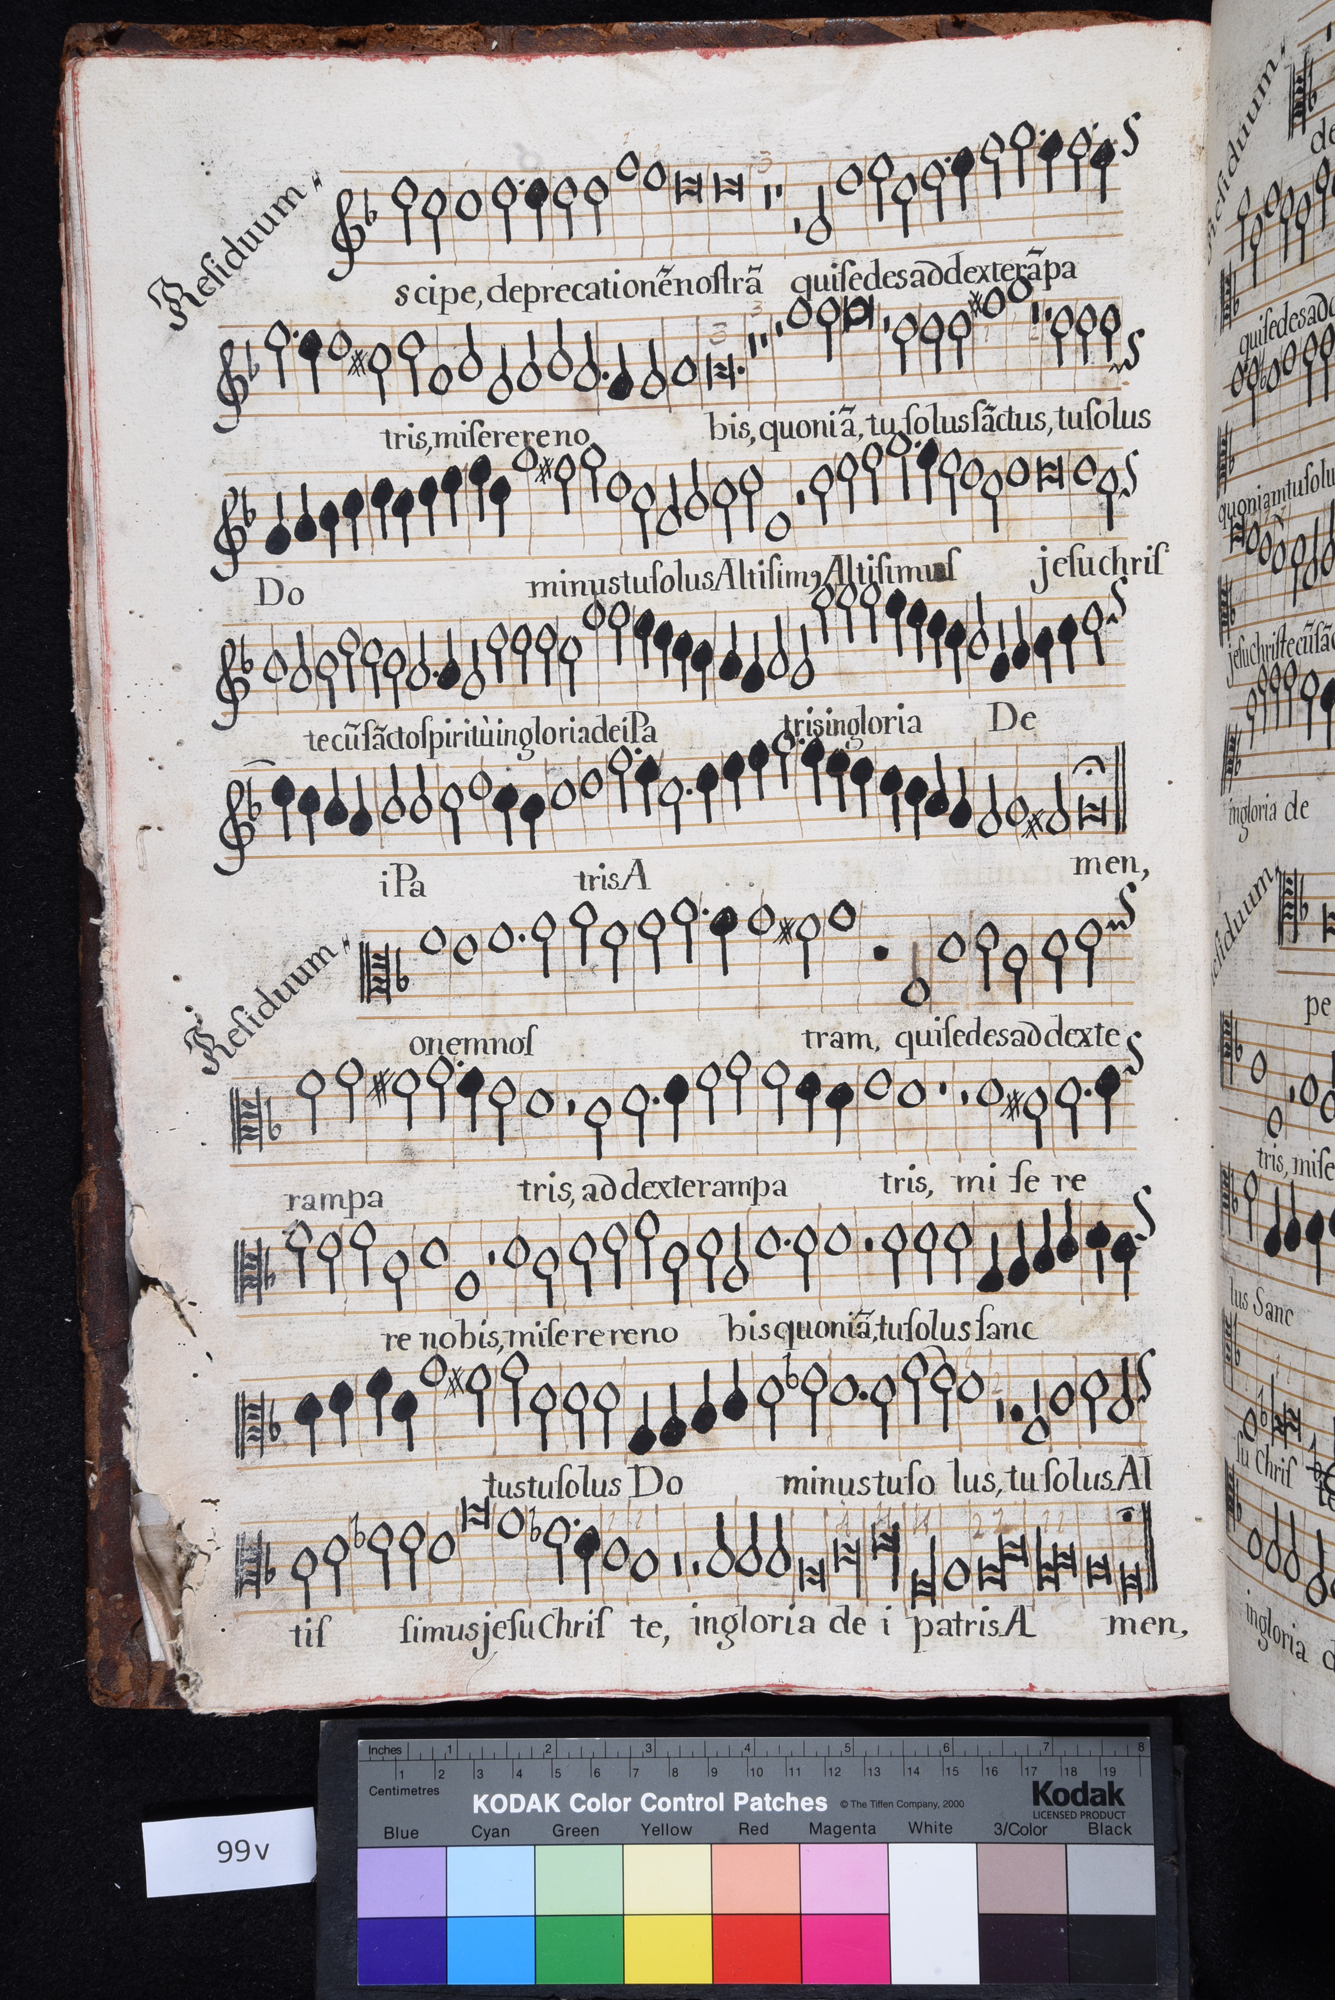 Reſiduum
scipe, deprecationẽ noſtrã quiſedesaddexterãpa
tris, miſerereno bis, quoniã, tu ſolusſãctus, tuſolus
Do minustuſolusAltiſimꝯ Altiſimusſ jeſuchriſ
tecũſãctoſpiritùingloriadeiPa trisingloria De
iPa trisA men,
Reſiduum
onemnoſ tram, quiſedesaddexte
rampa tris, addexterampa tris, mi ſe re
re nobis, miſerereno bisquoniã, tuſolus ſanc
tustuſolus Do minustuſo lus, tu ſolusAl
tiſ ſimusjeſuChriſ te, ingloria de i patrisA men,
Reſiduum
de
quiſedesadd
quoniamtuſolu
jeſuchriſtecũſãc
ingloria de
ſiduum
pe
tris, miſe
tus Sanc
ſu Chriſ te
ingloria d
99v
Inches 1 2 3 4 5 6 7 8
Centimetres 1 2 3 4 5 6 7 8 9 10 11 12 13 14 15 16 17 18 19
KODAK Color Control Patches © The Tiffen Company, 2000 Kodak
LICENSED PRODUCT
Blue Cyan Green Yellow Red Magenta White 3/Color Black